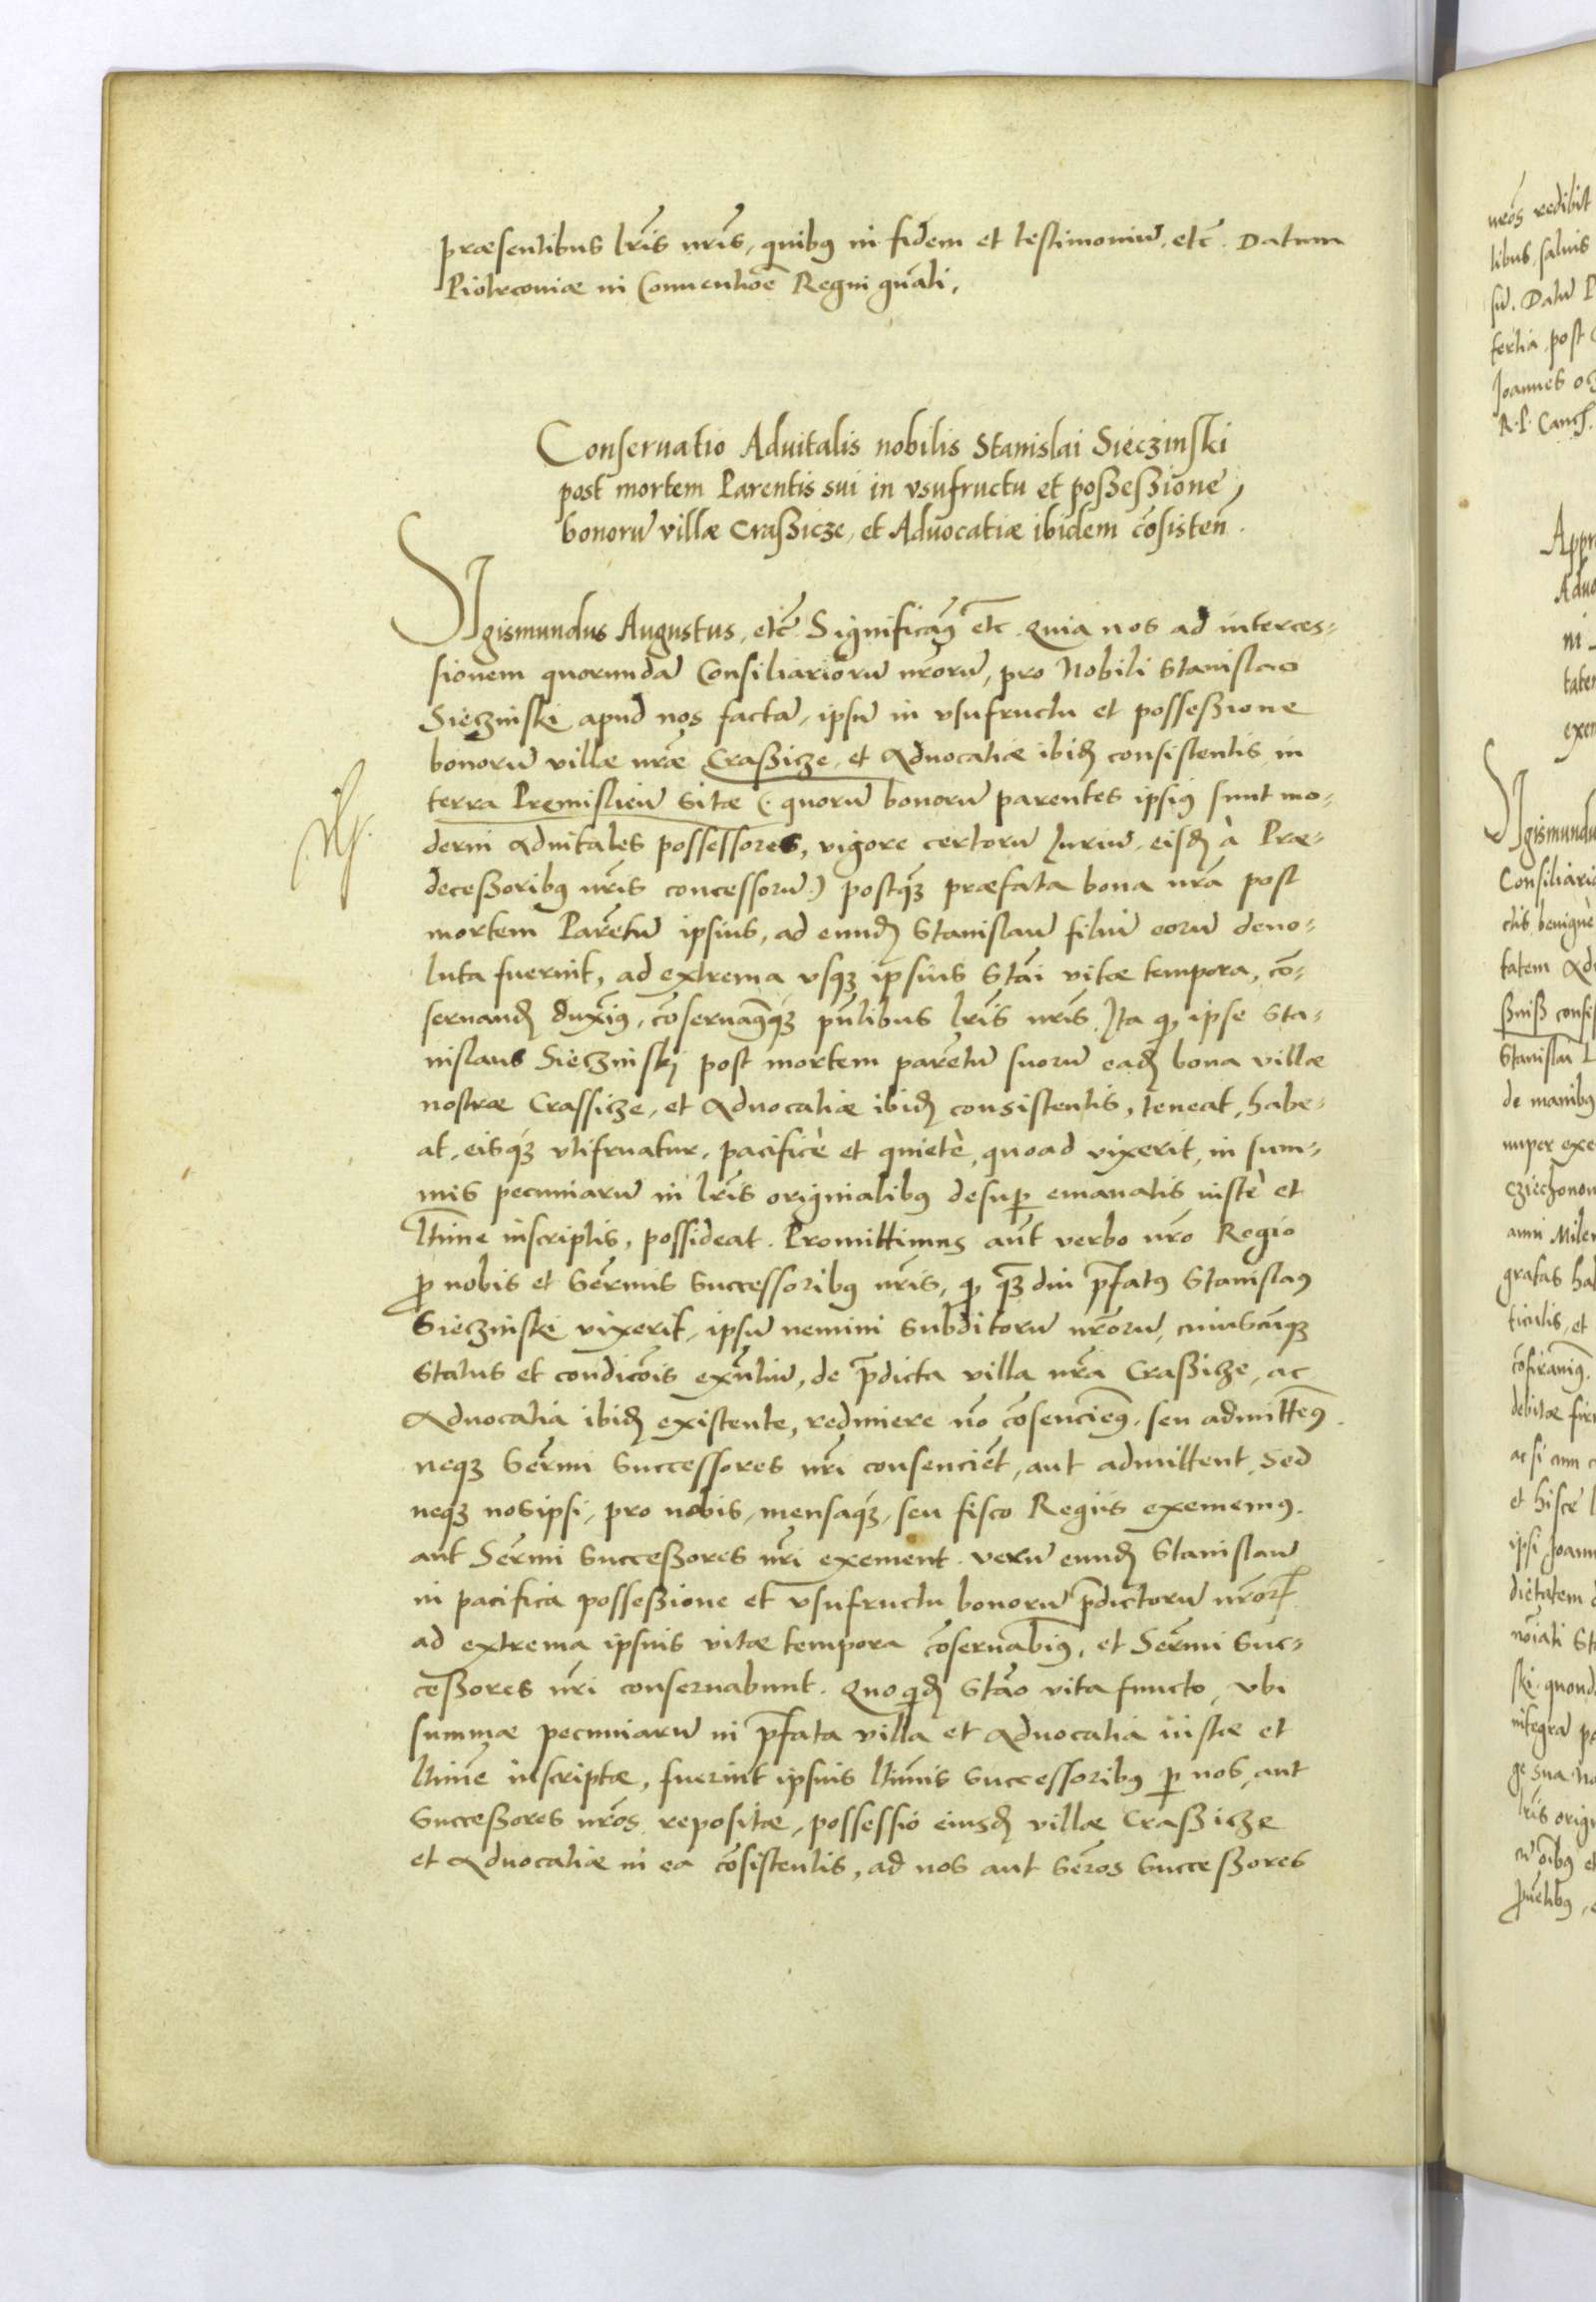 præsentibus lr̃is nr̃is, quibus in fidem et testimoniũ, etc̃. Datum
Piotrcoviæ in Conventiõe Regni gñali.
Conservatio Advitalis nobilis Stanislai Sieczinski
post mortem Parentis sui in vsufructu et possessione,
bonorũ villæ Crassicze, et Advocatiæ ibidem cõsisteñ.
Sigismundus Augustus, etc̃. Significam9 etc̃. Quia nos ad interces-
sionem quorundã Consiliariorũ nr̃orũ, pro Nobili Stanislao
Sieczinski apud nos factã, ipsũ in vsufructu et possessione
bonorũ villæ nr̃æ Crassicze, et Aduocatiæ ibid consistentis in
terra Premislieñ sitæ (quorũ bonorũ parentes ipsi9 sunt mo-
derni aduitales possessores, vigore certorũ Juriũ, eisd à Præ-
decessorib9 nr̃is concessorũ) postq̃ præfata bona nr̃a post
mortem Parẽtũ ipsius, ad eund Stanislaũ filiũ eorũ deuo-
luta fuerint, ad extrema vsq3 ipsius Stãi vitæ tempora, cõ-
seruand duxim9, cõseruam9q3 pñtibus lr̃is nr̃is. Ita q ipse Sta-
nislaus Sieczinski post mortem parẽtũ suorũ ead bona villæ
nostræ Crassicze, et Aduocatiæ ibid consistentis, teneat, habe-
at, eisq3 vtifruatur, pacificè et quietè, quoad vixerit, in sum-
mis pecuniarũ in lr̃is originalib9 desup emanatis iustè et
lt̃ime inscriptis, possideat. Promittimus aũt verbo nr̃o Regio
p nobis et Serm̃is Successorib9 nr̃is, q q̃diu p̃fat9 Stanisla9
Sieczinski vixerit, ipsũ nemini subditorũ nr̃orũ, cuiuscũq3
status et condicõis exñtiũ, de p̃dicta villa nr̃a Crassicze, ac
Aduocatia ibid existente, redimere nõ cõsenciem9, seu admittem9.
neq3 Serm̃i Successores nr̃i consenciẽt, aut admittent, sed
neq3 nosipsi, pro nobis, mensaq3, seu fisco Regiis eximem9.
aut Serm̃i Successores nr̃i exement. verũ eund Stanislaũ
in pacifica possessione et vsufructu bonorũ p̃dictorũ nr̃or
ad extrema ipsius vitæ tempora cõseruabim9, et Serm̃i Suc-
cessores nr̃i conseruabunt. Quoquid Stão vita functo, vbi
summæ pecuniarũ in p̃fata villa et Aduocatia iustæ et
lt̃ime inscriptæ, fuerint ipsius lt̃imis Successorib9 p nos, aut
Successores nr̃os repositæ, possessio eiusd villæ Crassicze
et Aduocatiæ in ea cõsistentis, ad nos aut Ser̃os Successores
nr̃os redibit
libus, saluis
sũ. Datũ P
tertia post
Joannes
R. P. Canc.
Appr
Aduo
ni
tatem
exem
Sigismundu
Consiliario
ctis, benignè
tatem Adu
consis
Stanislai
de manib9
nuper exe
anni Mile
gratas ha
ticulis, et
ac si cum
et hisce
ipsi Joann
dietatem
noĩati St
ski, quond
integra po
lr̃is orig